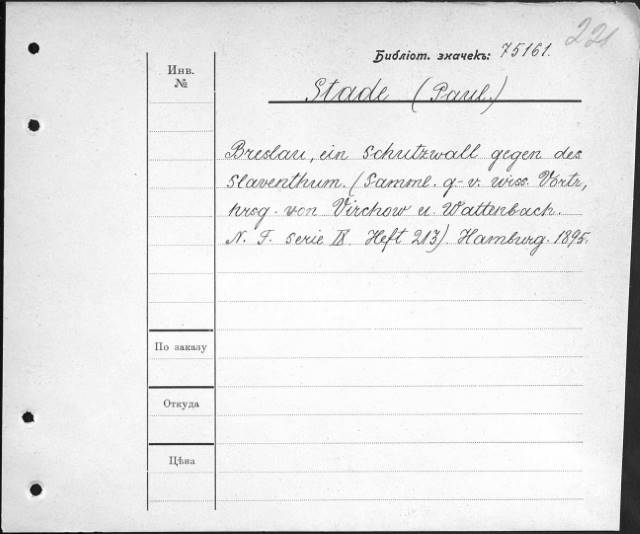 221
Библіот. значекъ: 75161.
Инв.
№
Stade (Paul.)
Breslau, ein Schutzwall gegen des
Slaventhum. (Samml. g-v. wiss. Vortr,
hrsg. von Virchow u. Wattenbach.
N. F. Serie IX Heft 213) Hamburg. 1895.
По заказу
Откуда
Цѣна